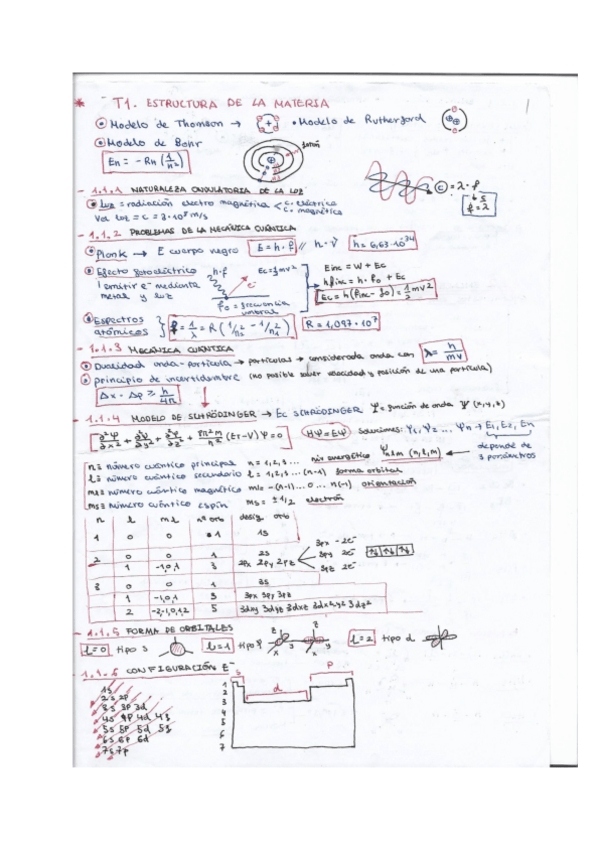 * T1. ESTRUCTURA DE LA MATERIA
1
Modelo de Thomson → • Modelo de Rutherford
Modelo de Bohr
En = - RH (1/n²)
- 1.1.1 NATURALEZA ONDULATORIA DE LA LUZ
Luz = radiación electro magnética < c. eléctrica
c. magnética
Vel luz = c = 3·10⁸ m/s
c = λ · f
- 1.1.2 PROBLEMAS DE LA MECÁNICA CUÁNTICA
Plank → E cuerpo negro E = h · f // h · V h = 6,63·10⁻³⁴
Efecto fotoeléctrico h·f Ec = ½ mv² Einc = W + Ec
! emitir e⁻ mediante
metal y luz
e⁻
h finc = h · fo + Ec
fo = frecuencia
umbral
Ec = h (finc - fo) = 1/2 mv²
Espectros
atómicos
R = 1,097 · 10⁷
- 1.1.3 MECÁNICA CUÁNTICA
Dualidad onda-partícula → partículas → considerada onda con λ = h/mv
principio de incertidumbre (no posible saber velocidad y posición de una partícula)
Δx · Δp ≥ h/4π
- 1.1.4 MODELO DE SCHRÖDINGER → Ec SCHRÖDINGER Ψ = función de onda Ψ (x,y,z)
∂²Ψ/∂x² + ∂²Ψ/∂y² + ∂²Ψ/∂z² + 8π²m/h² (ET-V) Ψ = 0 HΨ = EΨ Soluciones: Ψ1, Ψ2 = ... Ψn → E1, E2, En
n = número cuántico principal n = 1,2,3 ... niv energético Ψnlm (n,l,m) ← depende de
3 parámetros
l = número cuántico secundario l = 1,2,3 ... (n-1) forma orbital
ml = número cuántico magnético ml = -(n-1) ... 0 ... n(-1) orientación
ms = número cuántico espín ms = ± 1/2 electrón
n l ml nº orb desig. orb
1 0 0 1 1s
2 0 0 1 2s
1 -1,0,1 3 2px 2py 2pz
3px - 2e⁻
3py 2e⁻
3pz 2e⁻
3 0 0 1 3s
1 -1,0,1 3 3px 3py 3pz
2 -2,-1,0,1,2 5
- 1.1.5 FORMA DE ORBITALES
l=0 tipo s l=1 tipo p l=2 tipo d
z z
x y x
1.1.6 CONFIGURACIÓN E⁻
s p
d
1s
2s 2p
3s 3p 3d
4s 4p 4d 4f
5s 5p 5d 5f
6s 6p 6d
7s 7p
1
2
3
4
5
6
7